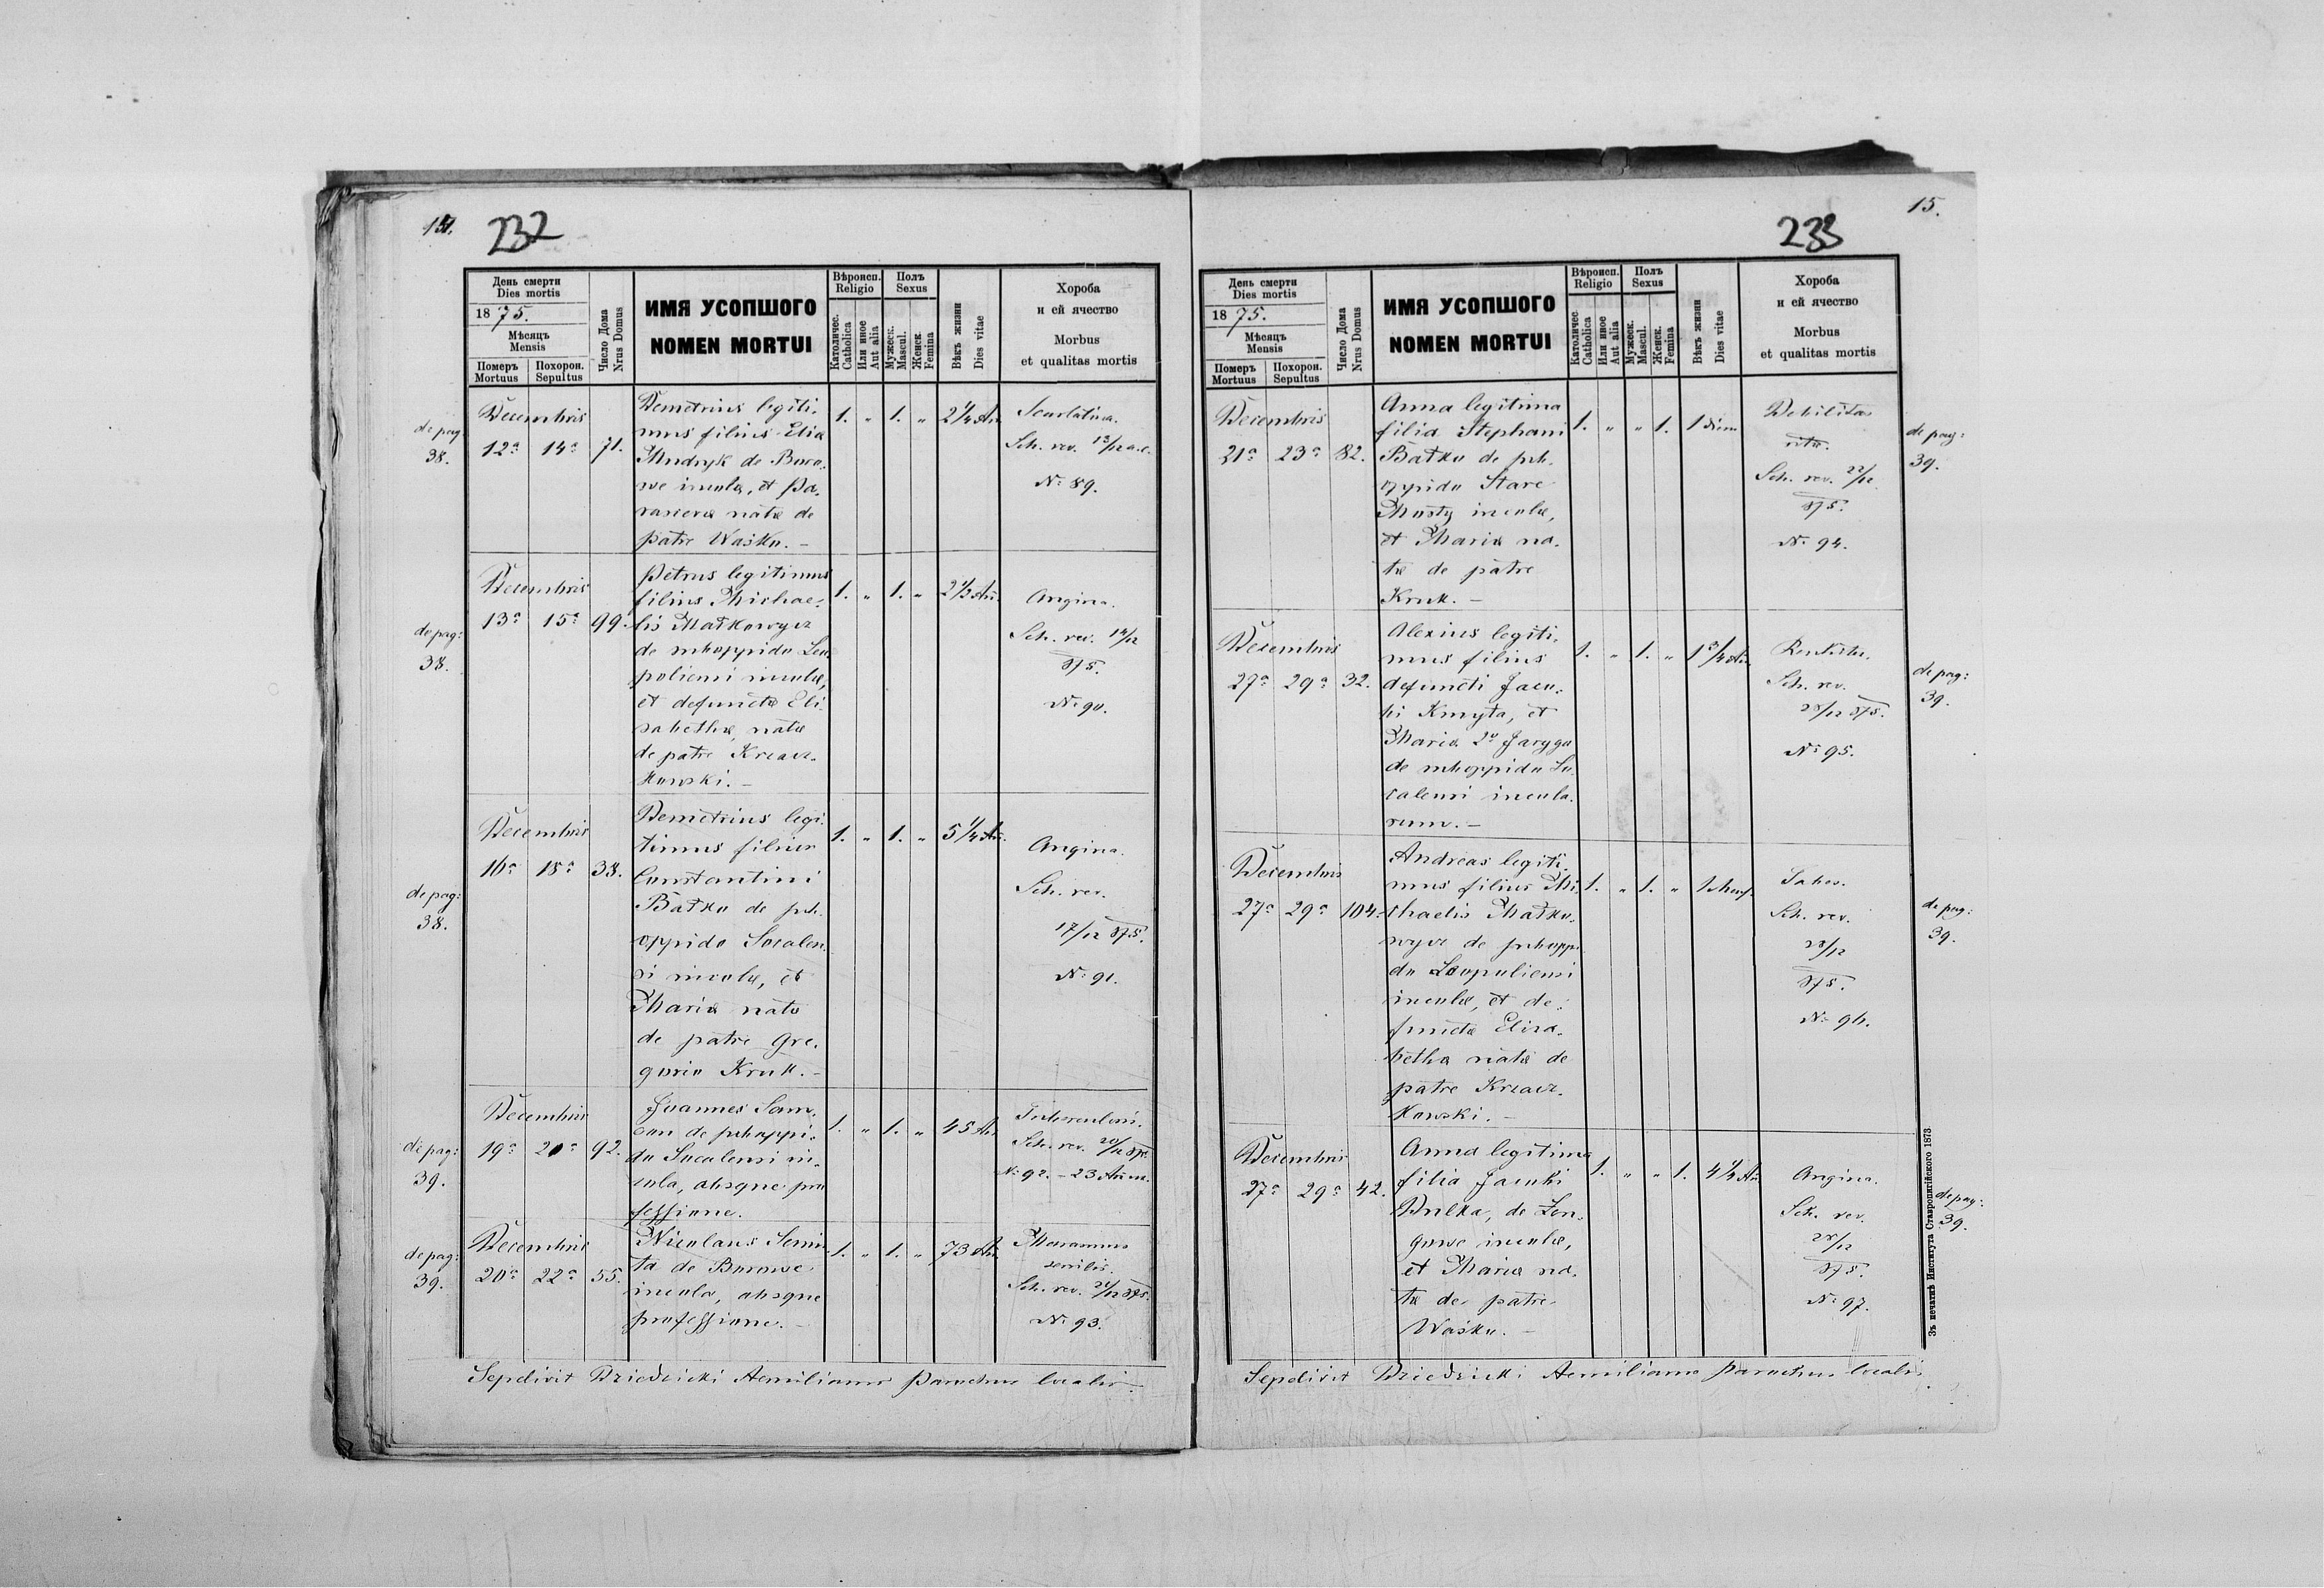 14.
232
День смерти
Dies mortis
1875.
Мѣсяцъ
Mensis
Померъ
Mortuus
Похорон.
Sepultus
Число Дома
Nrus Domus
ИМЯ УСОПШОГО
NOMEN MORTUI
Вѣроисп.
Religio
Католичес.
Catholica
Или иное
Aut alia
Полъ
Sexus
Мужеск.
Mascul.
Женск.
Femina
Вѣкъ жизни
Dies vitae
Хороба
и ей ячество
Morbus
et qualitas mortis
de pag:
38.
Decembris
12a 14a 71.
Demetrius legiti-
mus filius Eliæ
Mudryk de Boro-
we incolæ, et Pa-
rasievæ natæ de
patre Waśko. —
1. " 1. " 2 1/4 An.
Scarlatina.
Sch. rev. 13/12 a.c.
No 89.
de pag:
38.
Decembris
13a 15a 99.
Petrus legitimus
filius Michae-
lis Małkowycz
de suboppido Leo-
poliensi incolæ,
et defunctæ Eli-
sabethæ, natæ
de patre Kracz-
kowski. —
1. " 1. " 2 1/2 An.
Angina.
Sch. rev. 14/12
875.
No 90.
de pag:
38.
Decembris
16a 18a 38.
Demetrius legi-
timus filius
Constantini
Bałko de sub-
oppido Socalen-
si incolæ, et
Mariæ natæ
de patre Gre-
gorio Kruk. —
1. " 1. " 5 1/4 An.
Angina.
Sch. rev.
17/12 875.
No 91.
de pag:
39.
Decembris
19a 20a 92.
Joannes Sam-
de suboppi-
do Socalensi in-
cola, absque pro
fessione.
1. " 1. " 45 An
Tuberculosis.
Sch. rev. 20/12 875.
No 92. — 23 Annor.
de pag:
39.
Decembris
20a 22a 55.
Nicolaus
de Borowe
incola, absque
professione. —
1. " 1. " 73 An.
Marasmus
senilis.
Sch. rev. 21/12 875.
No 93.
Sepelivit Dziedzicki Aemilianus Parochus localis.
15.
233
День смерти
Dies mortis
1875.
Мѣсяцъ
Mensis
Померъ
Mortuus
Похорон.
Sepultus
Число Дома
Nrus Domus
ИМЯ УСОПШОГО
NOMEN MORTUI
Вѣроисп.
Religio
Католичес
Catholica
Или иное
Aut alia
Полъ
Sexus
Мужеск.
Mascul.
Женск.
Femina
Вѣкъ жизни
Dies vitae
Хороба
и ей ячество
Morbus
et qualitas mortis
Decembris
21a 23a 82.
Anna legitima
filia Stephani
Bałko de sub-
oppido Stare
Mosty incolæ,
et Mariæ na-
tæ de patre
Kruk. —
1. " " 1. 1 diem
Debilitas
vitæ.
Sch. rev. 22/12
875.
No 94.
de pag:
39.
Decembris
27a 29a 32.
Alexius legiti-
mus filius
defuncti Jaco-
bi Kmyta, et
Mariæ 2o Jaryga
de suboppido So-
calensi incola-
rum. —
1. " 1. " 1 3/4 An.
Sch. rev.
28/12 875.
No 95.
de pag:
39.
Decembris
27a 29a 104.
Andreas legiti-
mus filius Mi-
chaelis Małko-
wycz de suboppi
do Leopoliensi
incolæ, et de-
functæ Elisa-
bethæ natæ de
patre Kracz-
kowski. —
1. " 1. "
Tabes.
Sch. rev.
28/12
875.
No 96.
de pag:
39.
Decembris
27a 29a 42.
Anna legitima
filia Jacobi
Dulka, de Zon-
gowe incolæ,
et Mariæ na-
tæ de patre
Waśko. —
1. " " 1. 4 1/4 An
Angina.
Sch. rev.
28/12
875.
No 97.
de pag:
39.
Sepelivit Dziedzicki Aemilianus Parochus localis
Зъ печатнѣ Института Ставропигійского 1873.